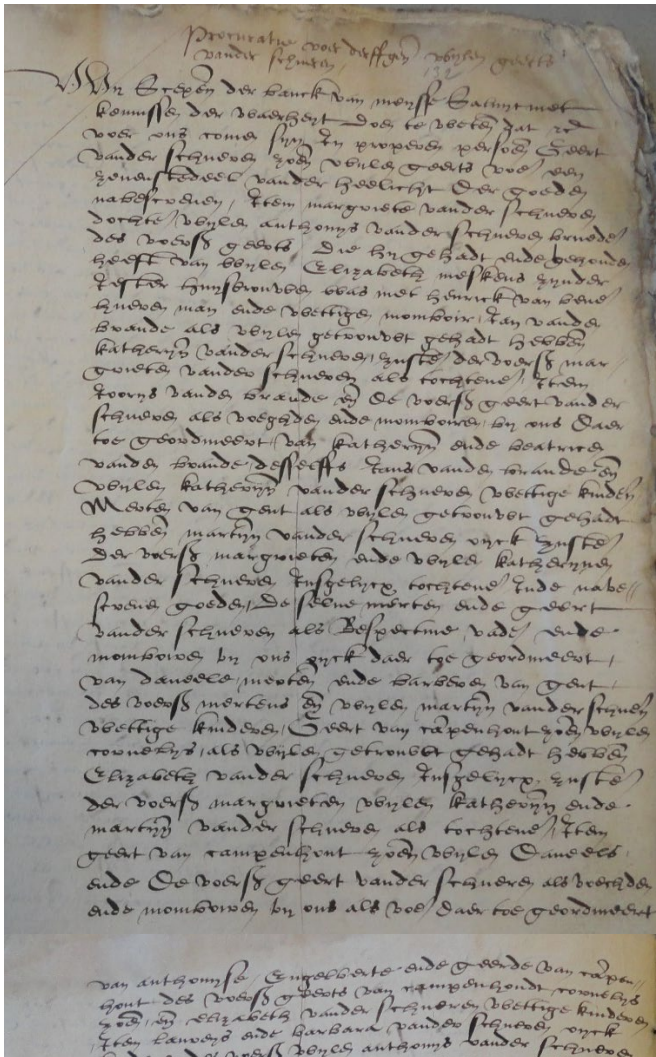 Procuratie voer derffgen wylen geerts
vander schueren
Wy Scepen der banck van meysse Saluyt met
kennissen der waerheyt doen te weten dat
voer ons comen syn In properen persoen Geert
vander schueren zoen wylen geerts voer een
zonensdeel vander heelicht der goeden
nabescreuen, Item margriete vander schueren
dochter wylen anthonys vander schueren brueder
des voers geerts die hy gehadt ende behouden
heeft van wylen Elizabeth meskens zynder
huysvrouwen was met henrick van
hueren man ende wettigen momboir Jan vande
brande als wylen getrouwt gehadt hebben
katheryn vander schueren zuster der voers mar
grieten vander schueren als tochtener Item
Joorys vanden brande en de voers geert vander
schueren als voeghden ende momboiren by ons daer
toe geordineert van katheryn ende beatricen
vanden brande desselffs Jans vanden brande en
wylen katheryn vander schueren wettige kinderen
Merten van gent als wylen getrouwt gehadt
hebben martyn vander schueren oyck zuster
der voers margrieten ende wylen katherynen
vander schueren Insgelycx tochtener Inde nabe
screuene goeden, De selue merten ende geert
vander schueren als Respectiue vader ende
momboiren by ons oyck daer toe geordineert
van daneele, merten ende barberen van gent
des voers mertens en wylen martyn vander schueren
wettige kinderen, Geert van campenhout zoen wylen
cornelys, als wylen getrouwt gehadt hebben
Elizabeth vander schueren Insgelycx zuster
der voers margrieten wylen katheryn ende
martyn vander schueren als tochtener, Item
geert van campenhout zoen wylen Daneels
ende De voers geert vander schueren als voechden
ende momboiren by ons als voer daer toe geordineert
van anthonyse, Engelberte ende geerde van campen
hout des voers geerts van campenhoudt cornelys
zoen, en elizabeth vander schueren wettige kinderen
Item laureys ende barbara vander schueren oyck
voers wylen anthonys vander schueren